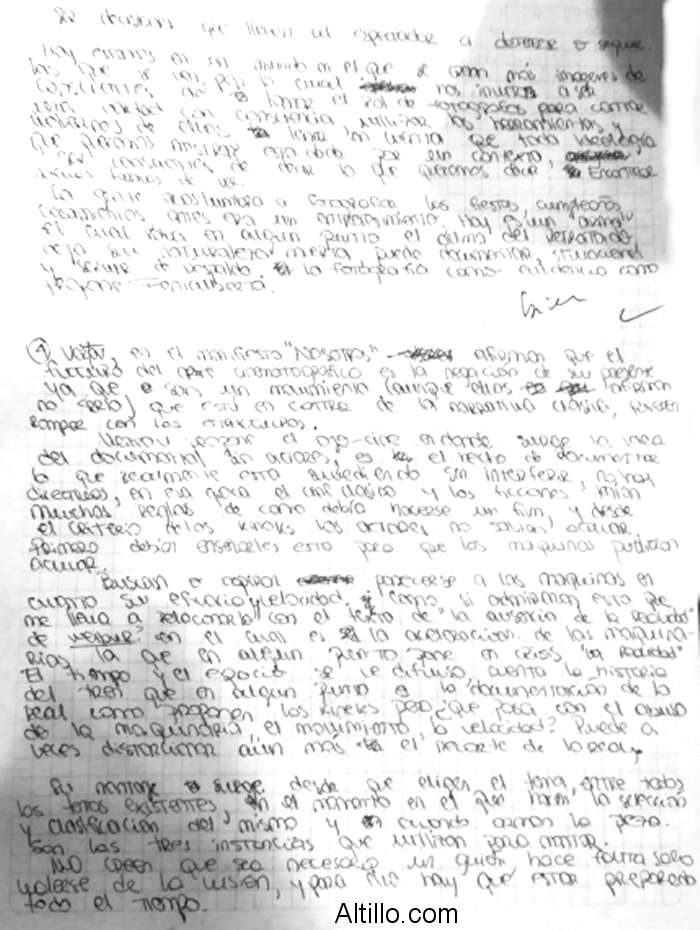 decisiones que lleven al espectador a detenerse o seguir.
Hoy estamos en un mundo en el que se crean más imágenes de
las que se ven, por lo cual nos invitan a
tomar el rol de fotógrafos para contar
con consciencia utilizar las herramientas y
tener en cuenta que toda ideología
que queremos mostrar esta dada por un contexto,
ser conscientes de decir lo que queremos decir. Encontrar
nuevas formas de ver.
La gente acostumbra a fotografiar las fiestas, cumpleaños
antes era un entretenimiento. Hoy es un "arma"
el cual roba en algún punto el alma del retratado
deja su naturaleza muerta, puede documentar, situaciones
y servir de respaldo. la fotografía como evidencia como
propone Fontcuberta.
① Vertov, en el manifiesto "Nosotros" afirman que el
futuro del arte cinematográfico es la negación de su presente
ya que son un movimiento (aunque ellos afirman
no serlo) que está en contra de la narrativa clásica, buscan
romper con las estructuras.
Vertov propone el ojo-cine en donde surge la idea
del documental sin actores, es el hecho de documentar
lo que realmente esta sucediendo sin interferir, no hay
directivas, en esa época el cine clásico y las ficciones tenían
muchas reglas de como debía hacerse un film, y desde
el criterio de los kinoks los actores no sabían actuar
Primero debían enseñarles esto para que las maquinas pudieran
actuar.
Buscan o copiar parecerse a las maquinas en
cuanto su espacio y velocidad, como si admiraran esto que
me lleva a relacionarlo con el texto de "la ausencia de la realidad"
de en el cual es la aceleración de las maquina-
rias la que en algún punto pone en crisis "la realidad"
El tiempo y el espacio se ve difuso, cuenta la historia
del tren que en algún punto es la documentación de lo
real como proponen los kinoks pero ¿que pasa con el abuso
de la maquinaria, el movimiento, la velocidad? Puede a
veces distorsionar aún más el recorte de lo real,
Su montaje surge desde que eligen el tema, entre todos
los temas existentes, en el momento en el que hacen la selección
y clasificación del mismo y cuando arman la pieza.
Son las tres instancias que utilizan para montar.
No creen que sea necesario un guión hace falta solo
valerse de la visión, y para ello hay que estar preparado
todo el tiempo.
Altillo.com